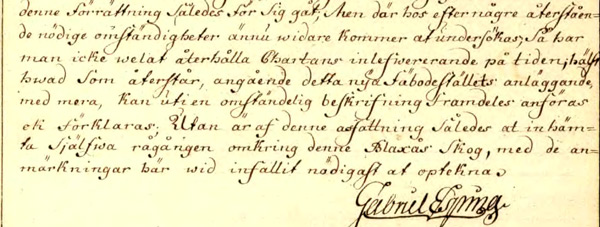 denne Förrättning Således För Sig gåt; Men där hos efter någre återståen-
de nödige omständigheter ännu widare kommer at undersökas; Så har
man icke welat återhålla Chartans inlefwererande på tiden, hälst
hwad Som återstår, angående detta nya Fäbodeställets anläggande,
med mera, kan uti en omständelig beskrifning framdeles anföras
ok Förklaras: Utan är af denne affattning Således at inhäm-
ta Själfwa rågången omkring denne Blaxås Skog, med de an-
märkningar här wid infallit nödigast at optekna.
Gabriel